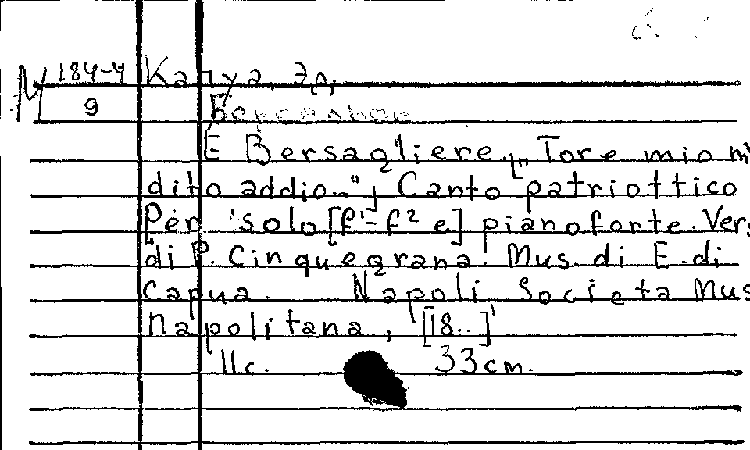 М 184-4 Капуа, Э.
9 Берсальер
E Bersagliere „Tore mio m'
dito addio..", Canto patriottico
Per solo [f'-f² e] pianoforte. Vers
di P. Cinquegrana. Mus. di E. di
Capua. Napoli, Societa Mus
Napolitana, [18..]
11c. 33cm.